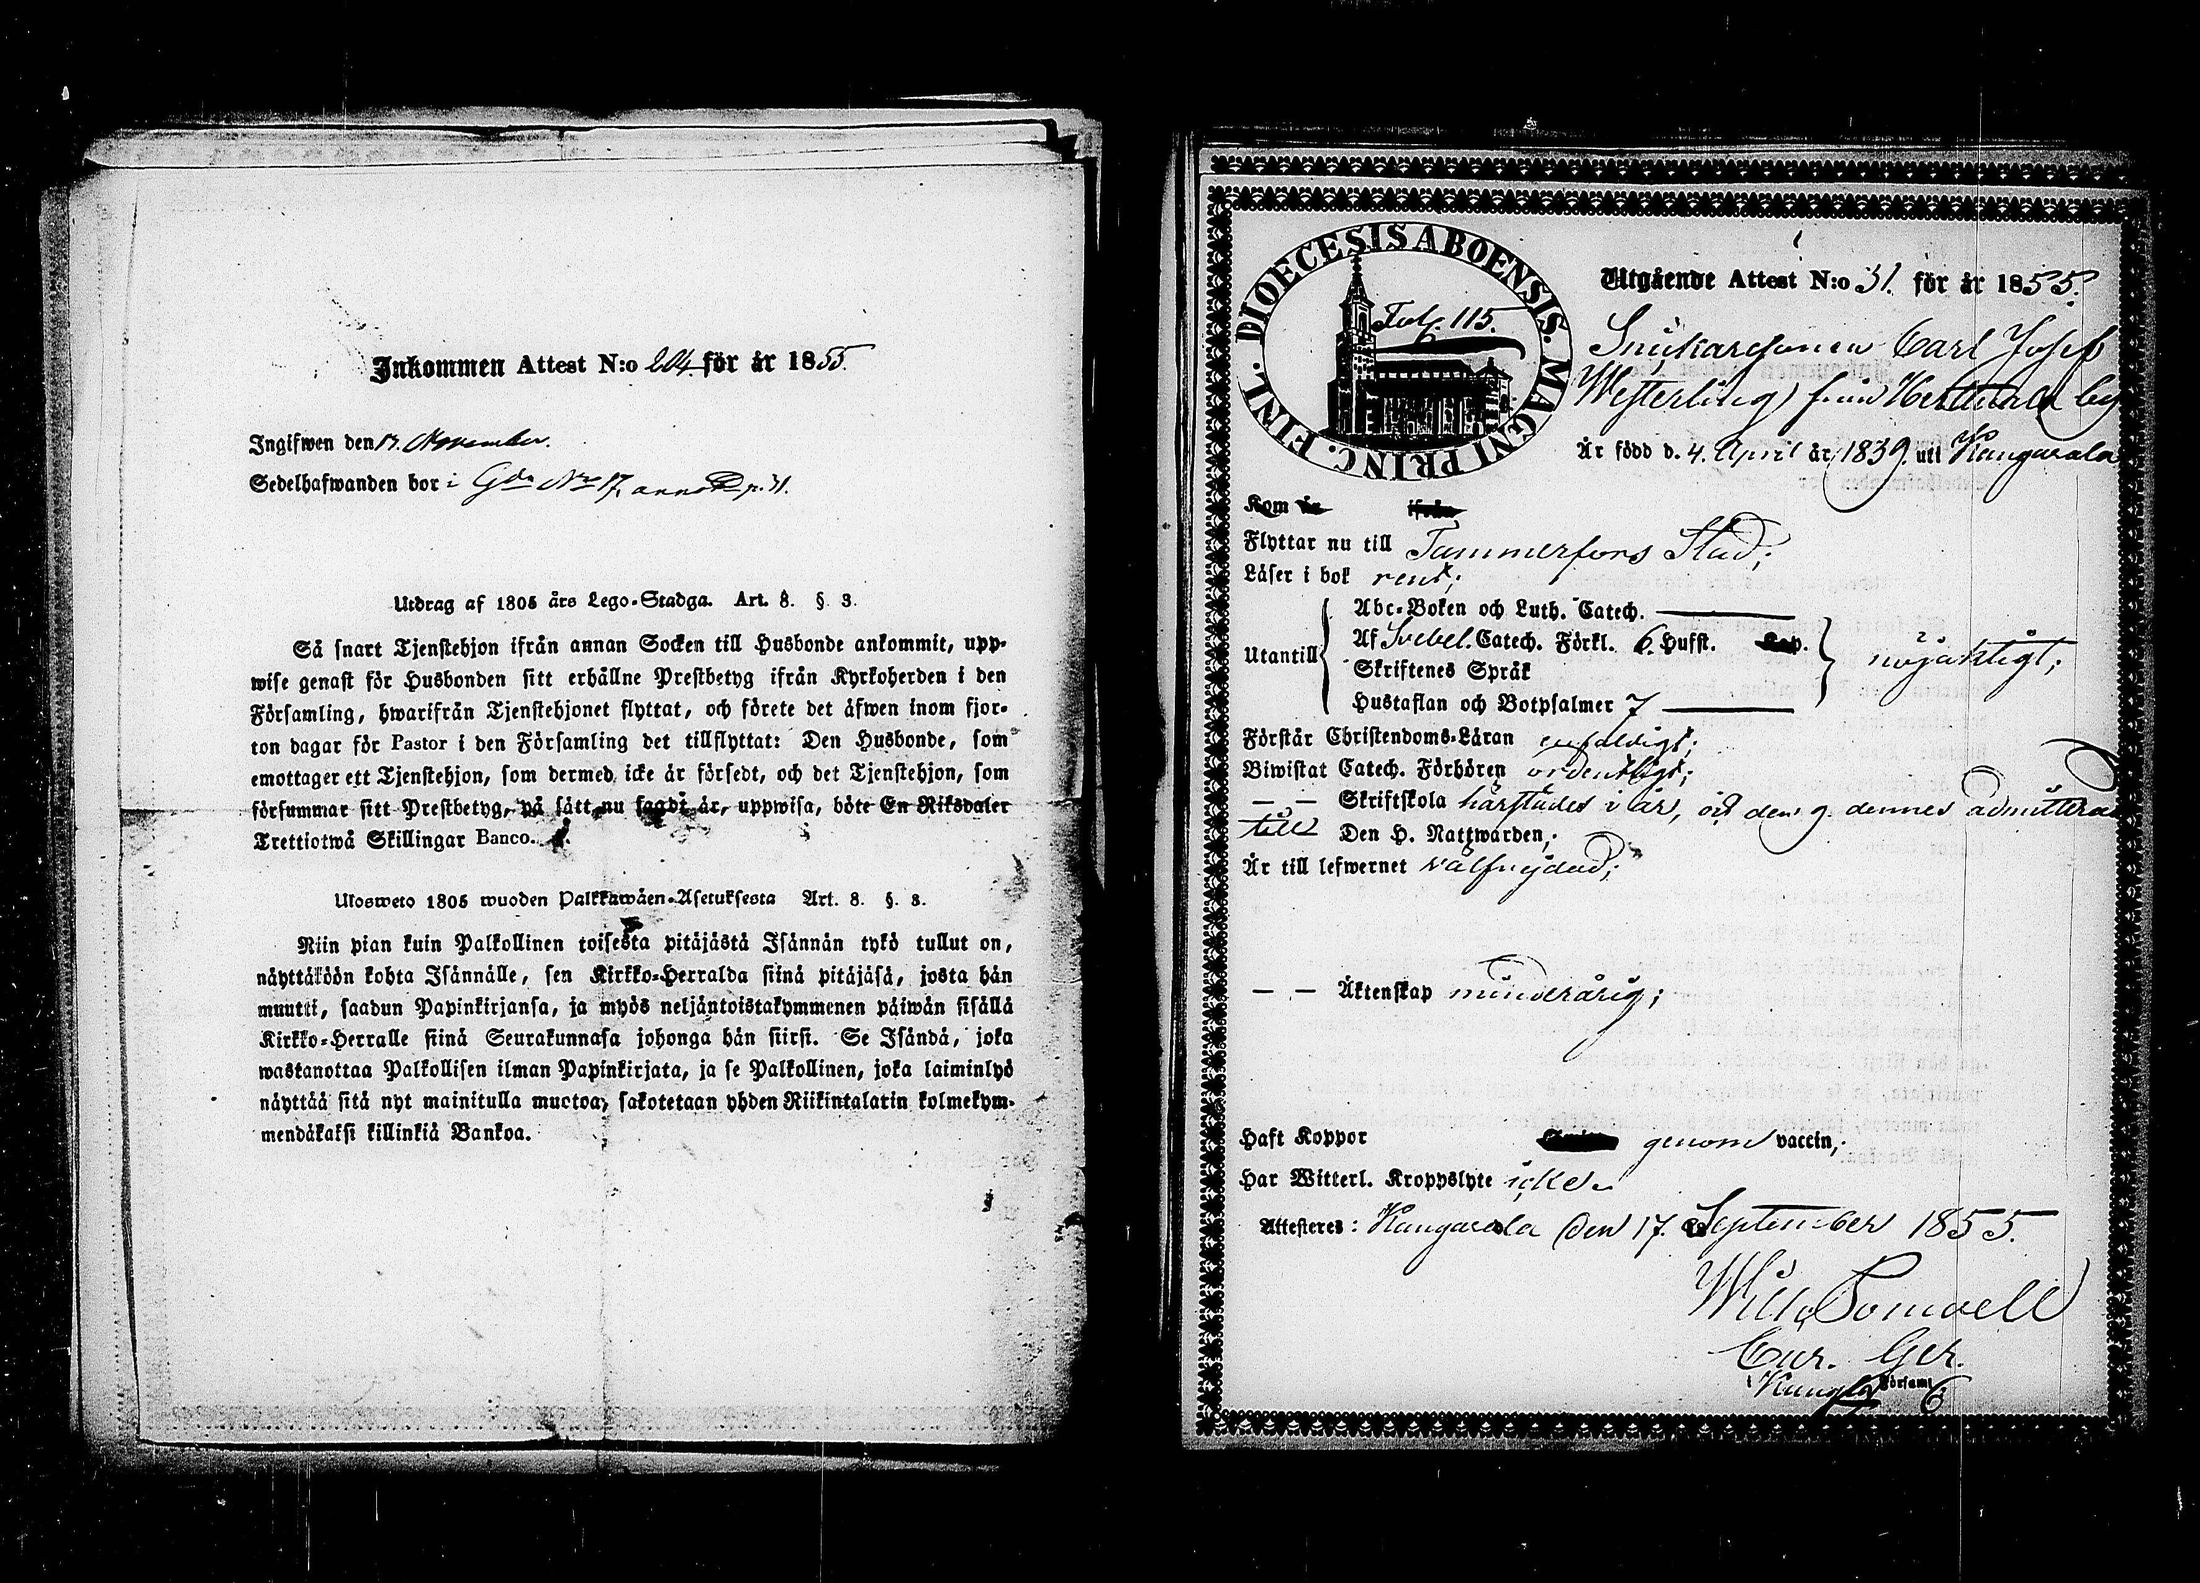 Inkommen Attest N:o 204 för år 1855.
Ingifwen den 17. November.
Sedelhafwanden bor i Gdn No 17, p. 31.
Utdrag af 1805 års Lego-Stadga. Art. 8. §. 3.
Så snart Tjenstehjon ifrån annan Socken till Husbonde ankommit, upp-
wise genast för Husbonden sitt erhållne Prestbetyg ifrån Kyrkoherden i den
Församling, hwarifrån Tjenstehjonet flyttat, och förete det äfwen inom fjor-
ton dagar för Pastor i den Församling det tillflyttat: Den Husbonde, som
emottager ett Tjenstehjon, som dermed icke är försedt, och det Tjenstehjon, som
försummar sitt Prestbetyg, på sätt nu sagdt är, uppwisa, böte En Riksdaler
Trettiotwå Skillingar Banco.
Ulosweto 1805 wuoden Palkkawäen-Asetuksesta Art. 8. §. 3.
Niin pian kuin Palkollinen toisesta pitäjästä Isännän tykö tullut on,
näyttäköön kohta Isännälle, sen Kirkko-Herralda siinä pitäjäsä, josta hän
muutti, saadun Papinkirjansa, ja myös neljäntoistakymmenen päiwän sisällä
Kirkko-Herralle siinä Seurakunnasa johonga hän siirsi. Se Isändä, joka
wastanottaa Palkollisen ilman Papinkirjata, ja se Palkollinen, joka laiminlyö
näyttää sitä nyt mainitulla muotoa, sakotetaan yhden Riikintalarin kolmekym-
mendäkaksi killinkiä Bankoa.
DIOECESIS ABOENSIS. MAGNI PRINC. FINL.
Fol. 115.
Utgående Attest N:o 31. för år 1855.
Snickaresonen Carl Josef
Westerling från by
Är född d. 4. April år 1839. uti Kangasala
Kom år ifrån
Flyttar nu till Tammerfors Stad;
Läser i bok rent;
Abc-Boken och Luth. Catech.
Utantill Af Svebel. Catech. Förkl. 6. Hufst. Kap. nöjaktigt;
Skriftenes Språk
Hustaflan och Botpsalmer 7
Förstår Christendoms-Läran enfaldigt;
Biwistat Catech. Förhören ordentligt;
— — Skriftskola härstädes i år, och den 9. dennes admitterad
till Den H. Nattwarden;
Är till lefwernet välfrejdad;
— — Äktenskap minderårig;
Haft Koppor genom vaccin;
Har Witterl. Kroppslyte icke.
Attesteras: Kangasala den 17. September 1855.
Wilh. Bomvell
Cur. Ger.
i Kangala Församl.